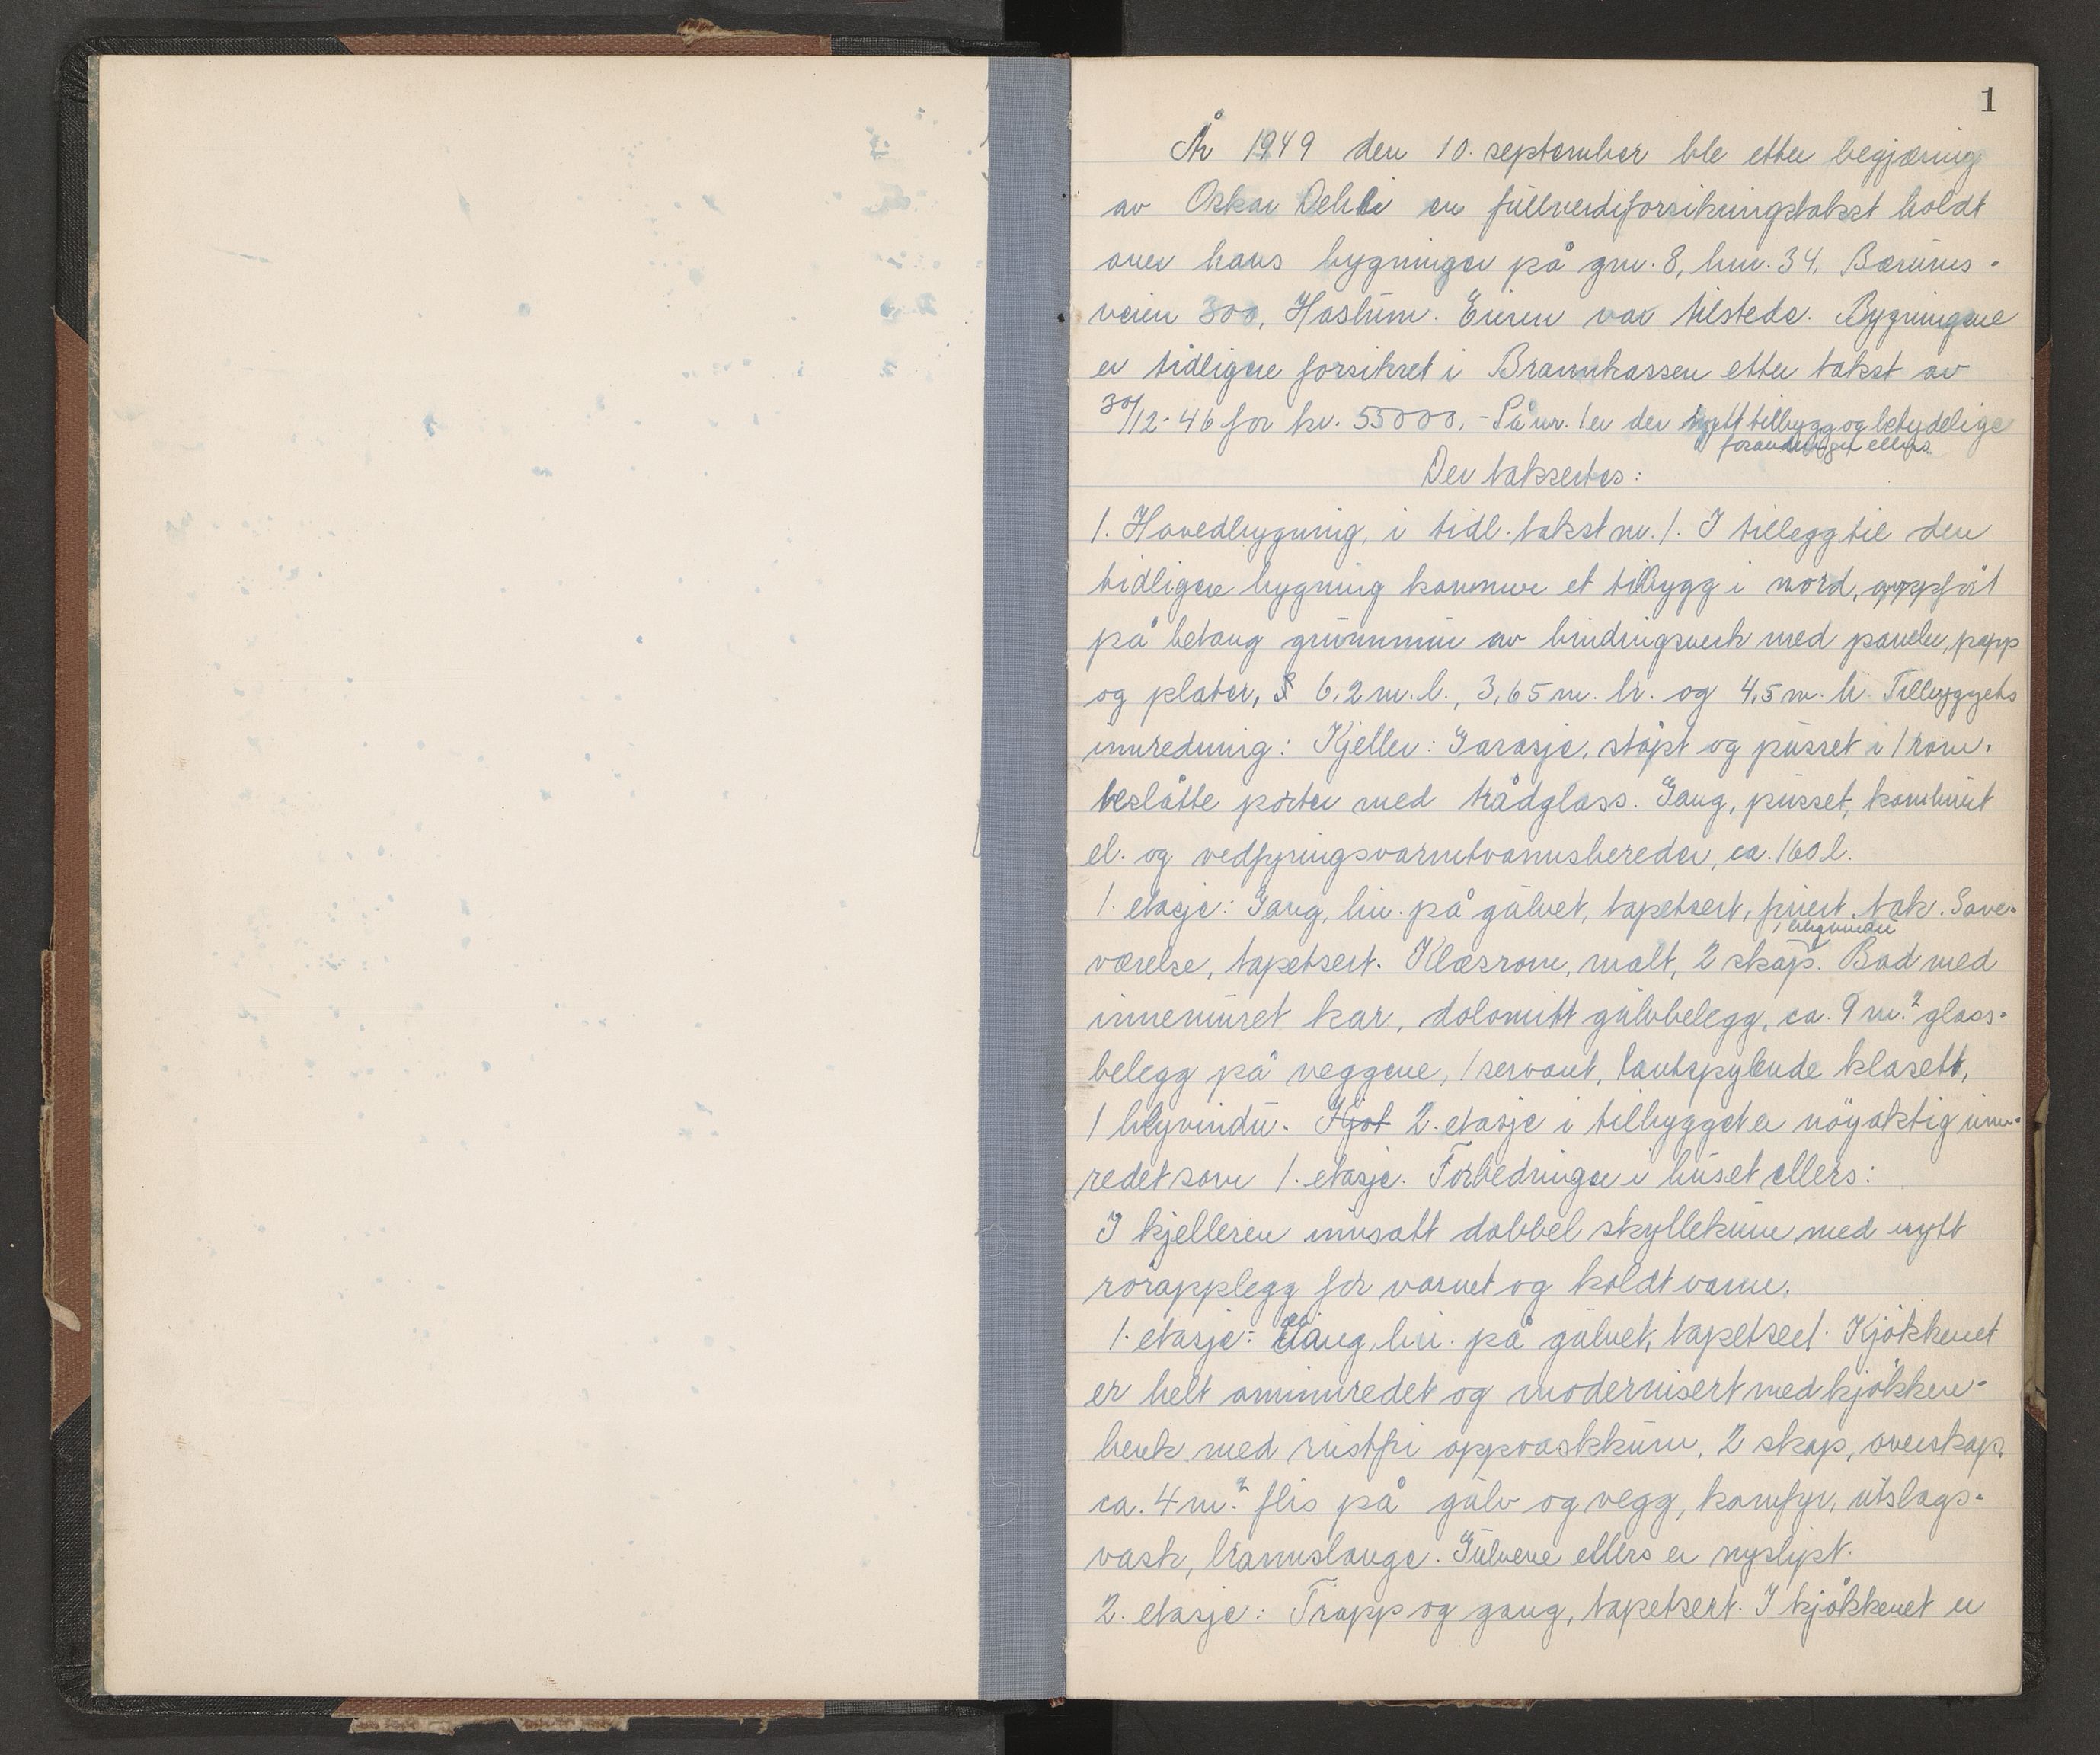 1
År 1949 den 10. september ble etter begjæring
av Oskar Dehli en fullverdiforsikringstakst holdt
over hans bygninger på gnr. 8, bnr. 34, Bærums-
veien 300, Haslum. Eieren var tilstede. Bygningene
er tidligere forsikret i Brannkassen etter takst av
30/12-46 for kr. 55000,- På nr. 1 er der nytt tilbygg og betydelige
forandringer ellers.
Der taksertes:
1. Hovedbygning, i tidl. takst nr. 1. I tillegg til den
tidligere bygning kommer et tilbygg i nord, oppført
på betong grunnmur av bindingsverk med paneler, papp
og plater, 6,2 m. l., 3,65 m. br. og 4,5 m. h. Tilbyggets
innredning: Kjeller: Garasje, støpt og pusset i 1 rom.
beslåtte porter med trådglass. Gang, pusset, kombinert
el. og vedfyringsvarmtvannsbereder, ca. 160 l.
1. etasje: Gang, lin. på gulvet, tapetsert, tak. Sove-
, blyvindu
værelse, tapetsert. Klesrom, malt, 2 skap. Bad med
innemuret kar, dolomitt gulvbelegg, ca. 9 m.² glass-
belegg på veggene, 1 servant, lavtspylende klosett,
1 blyvindu. 2. etasje i tilbygget er nøyaktig inn-
redet som 1. etasje. Forbedringer i huset ellers:
I kjelleren innsatt dobbel skyllekum med nytt
røropplegg for varmt og koldt vann.
1. etasje: Gang, lin. på gulvet, tapetsert. Kjøkkenet
er helt ominnredet og modernisert med kjøkken-
benk med rustfri oppvaskkum, 2 skap, overskap,
ca. 4 m.² flis på gulv og vegg, komfyr, utslags-
vask, brannslange. Gulvene ellers er nyslipt.
2. etasje: Trapp og gang, tapetsert. I kjøkkenet er